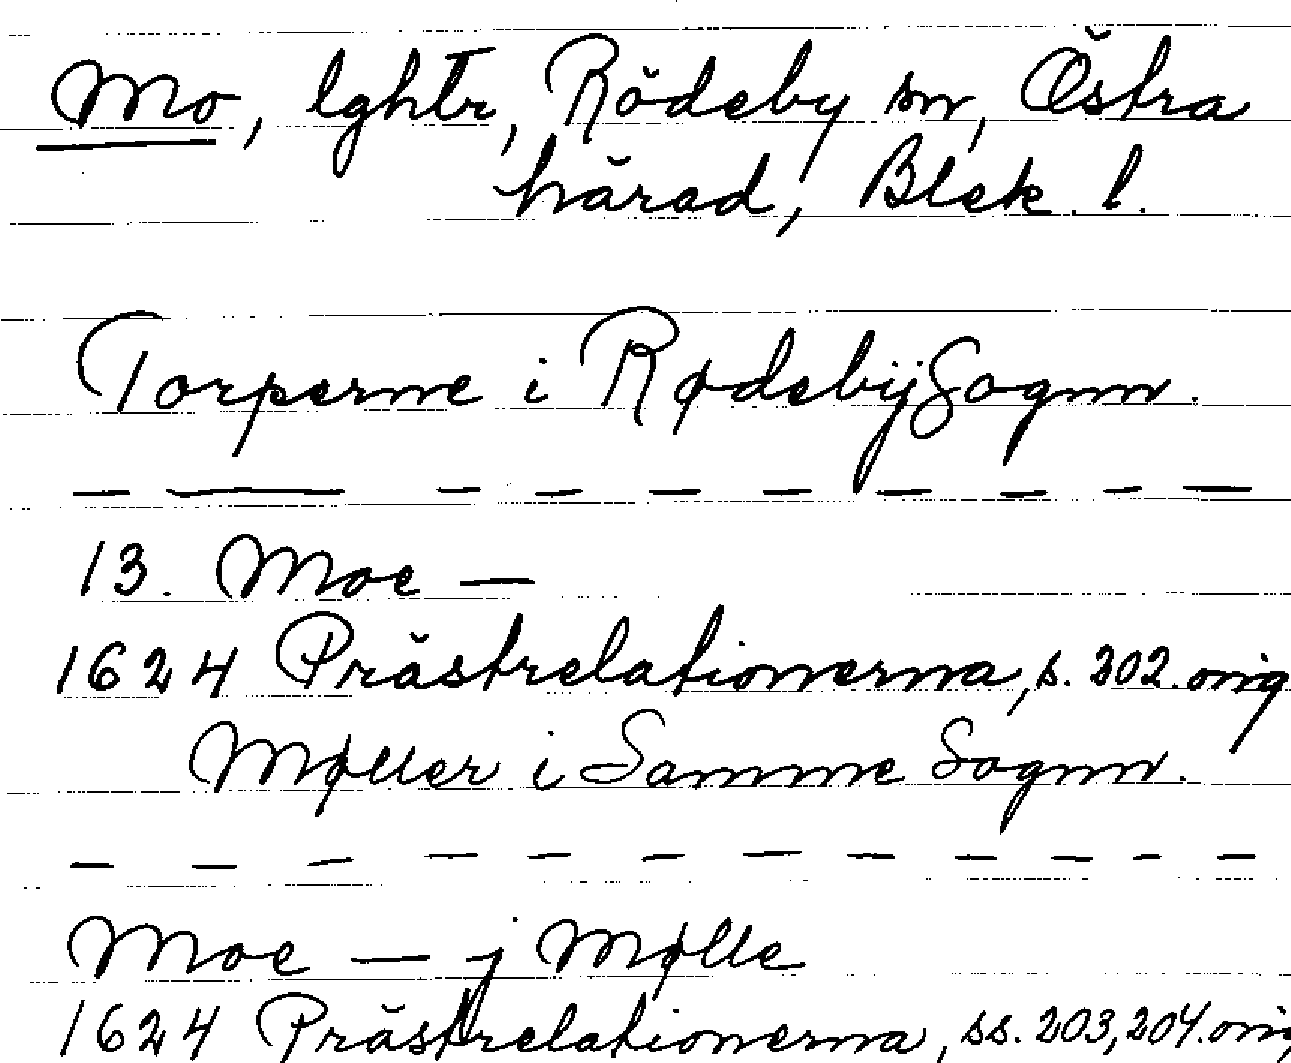 Mo, lghtr, Rödeby sn, Östra
härad, Blek. l.
Torperne i RødebijSognn.
— — — — — — — — — —
13. Moe —
1624 Prästrelationerna, s. 202. orig
Møller i Samme Sognn.
— — — — — — — — — — — —
Moe — j Mølle
1624 Prästrelationerna, ss. 203, 204. orig